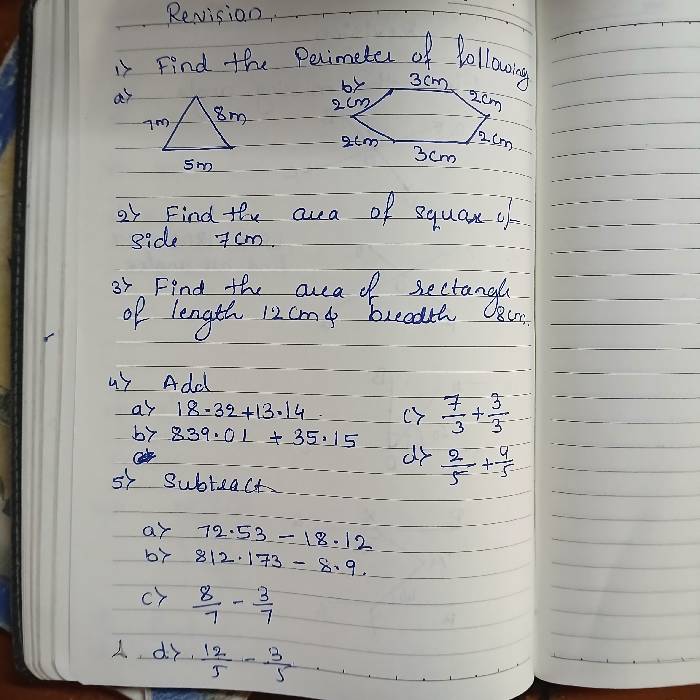 Revision
1) Find the Perimeter of following
a)
7m
8m
5m
b)
3cm
2cm
2cm
2cm
2cm
3cm
2) Find the area of square of
side 7cm.
3) Find the area of rectangle
of length 12cm & breadth 8cm.
4) Add
a) 18.32+13.14
b) 839.01 + 35.15
c) 7/3 + 3/3
d) 2/5 + 9/5
5) Subtract
a) 72.53 - 18.12
b) 812.173 - 8.9.
c) 8/7 - 3/7
d) 12/5 - 3/5